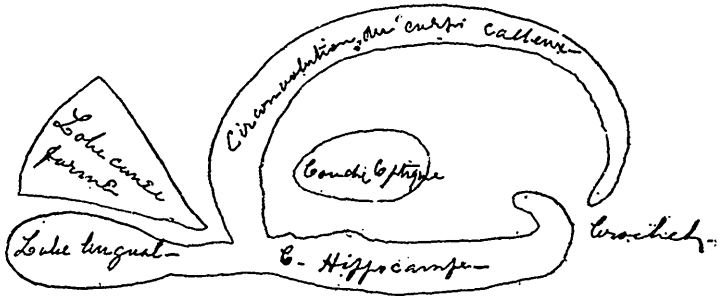 Circonvolution du corps calleux
Lobe cunei
forme
Couche Optique
Lobe lingual
C. Hippocampe
Crochet